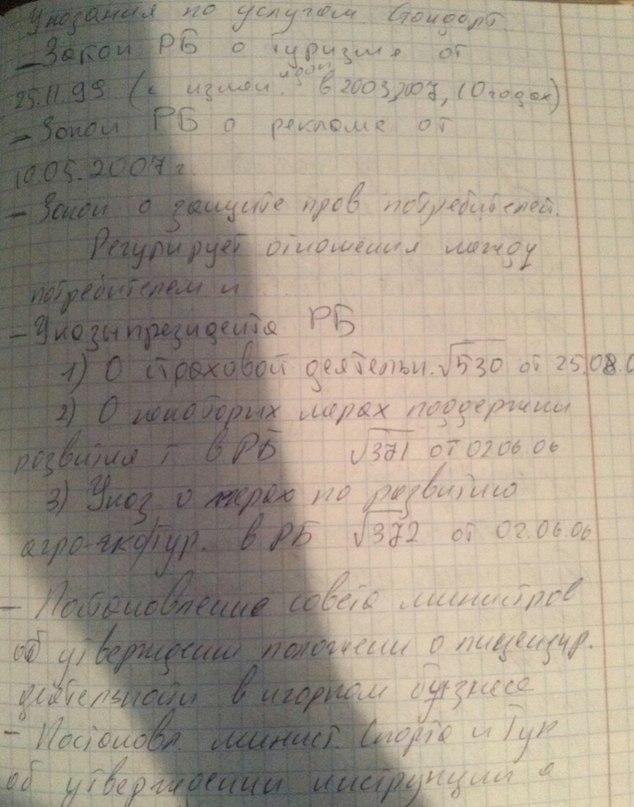 Указания по услугам. Стандарт.
– Закон РБ о туризме от
25.11.99 (с измен. в 2003, 2007, 10 годах)
– Закон РБ о рекламе от
10.05.2007 г.
– Закон о защите прав потребителей.
Регурирует отношения между
потребителем и
– Указы президента РБ
1) О страховой деятельн. √530 от 25.08.0
2) О некоторых мерах поддержки
развития т. в РБ √371 от 02.06.06
3) Указ о мерах по развитию
агро-экотур. в РБ √372 от 02.06.06
– Постановление совета министров
об утверждении положени о лицензир.
деятельности в игорном бизнесе
– Постановл. минист. Спорта и Тур
об утверждении инструкции о